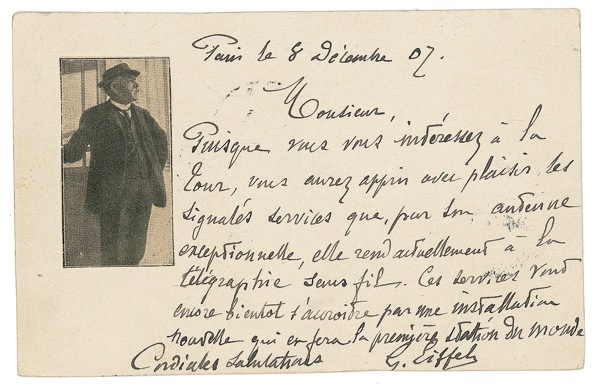 Paris le 8 Décembre 07.
Monsieur,
Puisque vous vous intéressez à la
tour, vous aurez appris avec plaisir les
signalés services que, par son antenne
exceptionnelle, elle rend actuellement à la
télégraphie sans fil. Ces services vont
encore bientot s'accroitre par une installation
nouvelle qui en fera la première station du monde
Cordiales salutations G. Eiffel